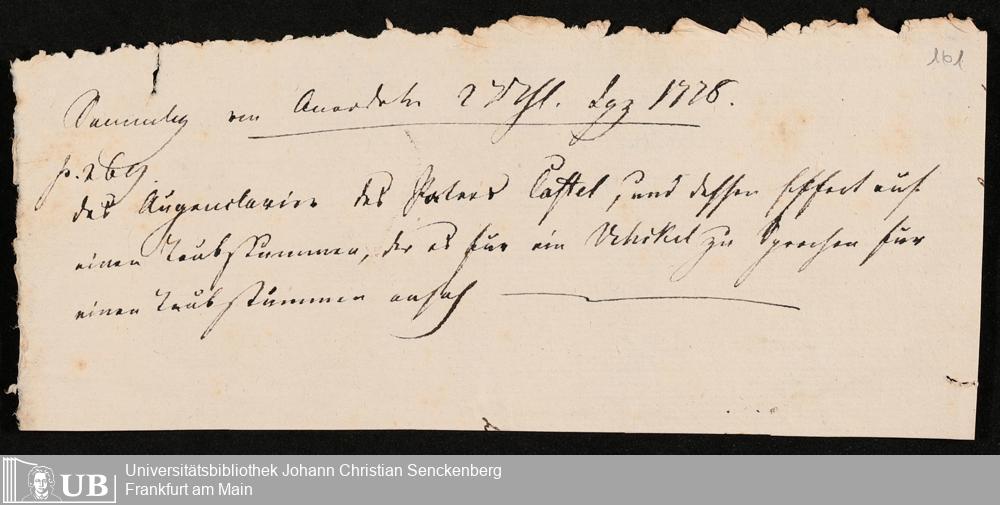 161
Sammlung von Anecdoten 2 Thl. Lpz 1778.
p. 269.
das Augenclavier des Paters Castel, und dessen Effect auf
einen Taubstummen, der es für ein Vehikel zu Sprechen für
einen Taubstummen ansah
Universitätsbibliothek Johann Christian Senckenberg
Frankfurt am Main
UB